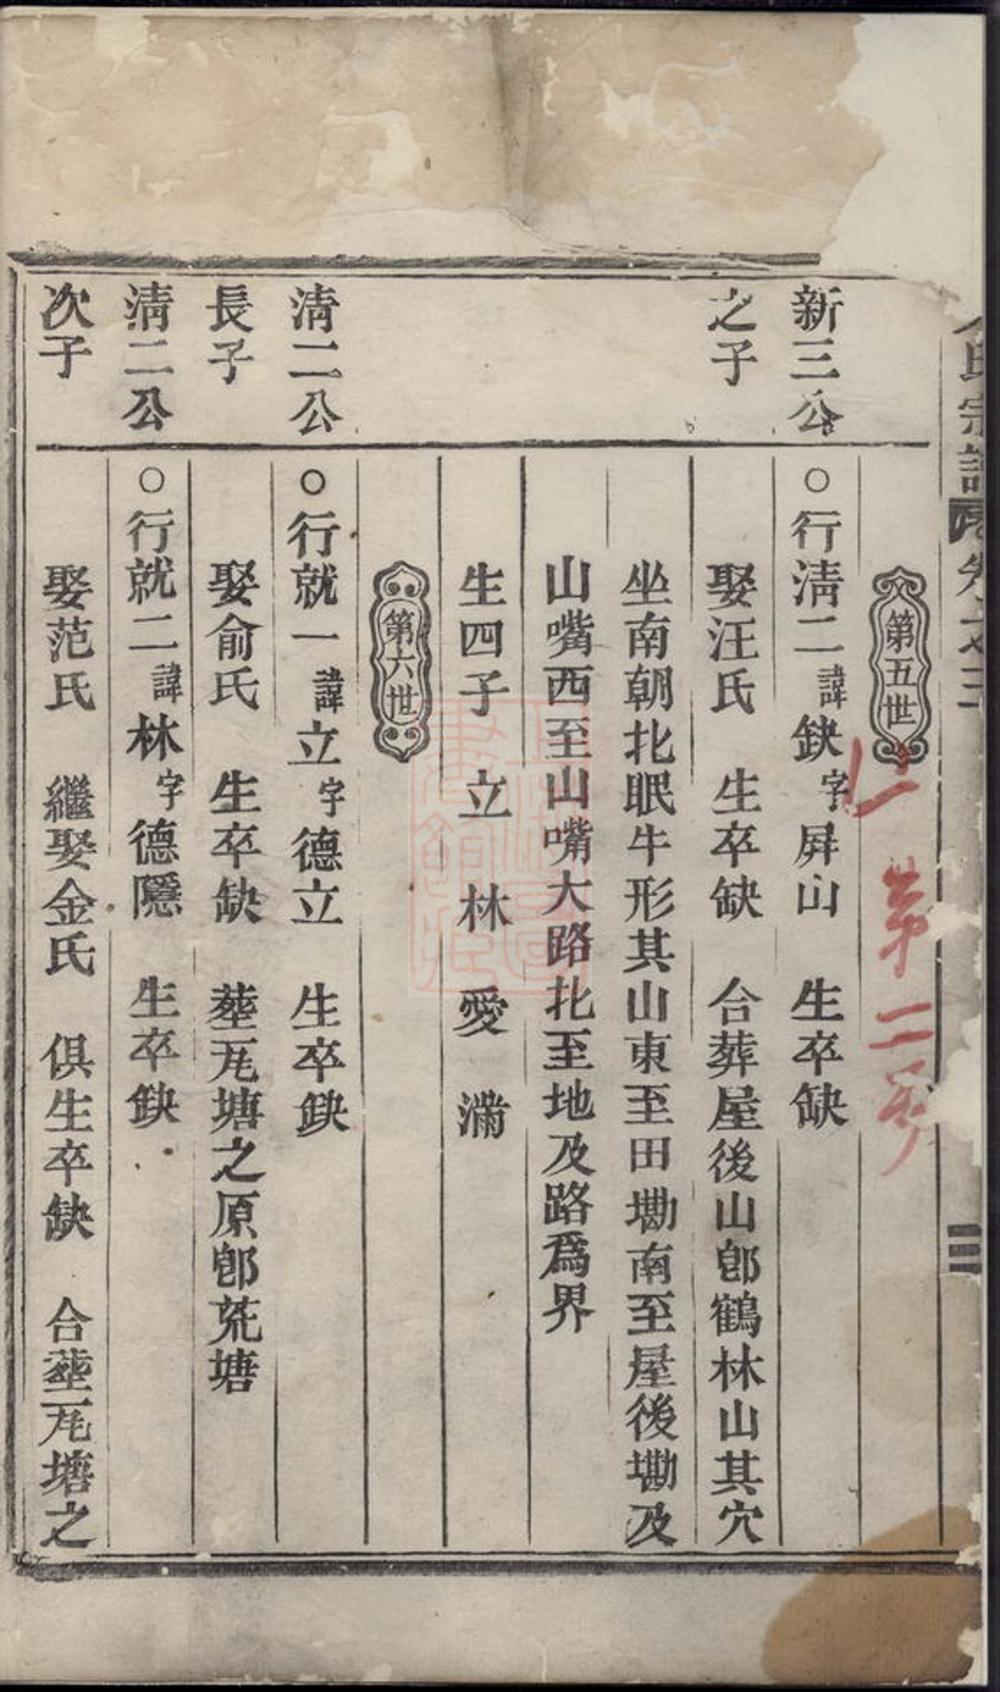 氏宗譜 卷之二 三
第五世
新三公
之子
○行清二諱缺字屏山 生卒缺
娶汪氏 生卒缺 合葬屋後山卽鶴林山其穴
坐南朝北眠牛形其山東至田墈南至屋後墈及
山嘴西至山嘴大路北至地及路爲界
生四子 立 林 愛 滿
第六世
清二公
長子
○行就一諱立字德立 生卒缺
娶俞氏 生卒缺 塟㼚塘之原卽茺塘
清二公
次子
○行就二諱林字德隱 生卒缺
娶范氏 繼娶金氏 俱生卒缺 合塟㼚塘之
仁 第二房